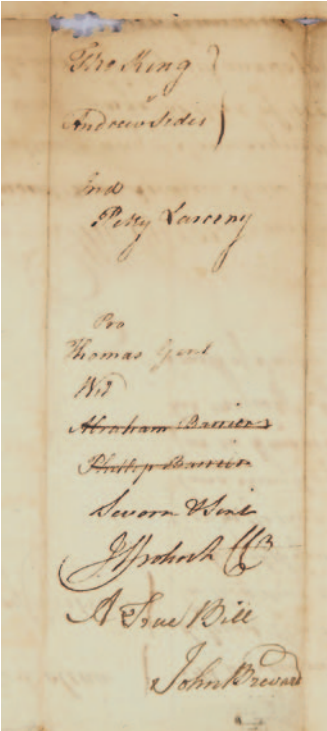 The King
v
Andrew Sides
Ind
Petty Larceny
Pro
Thomas
Wit
Abraham Barrier
Phillip Barrier
Sworn & Sent
J Frohock CCC
A True Bill
John Brevard